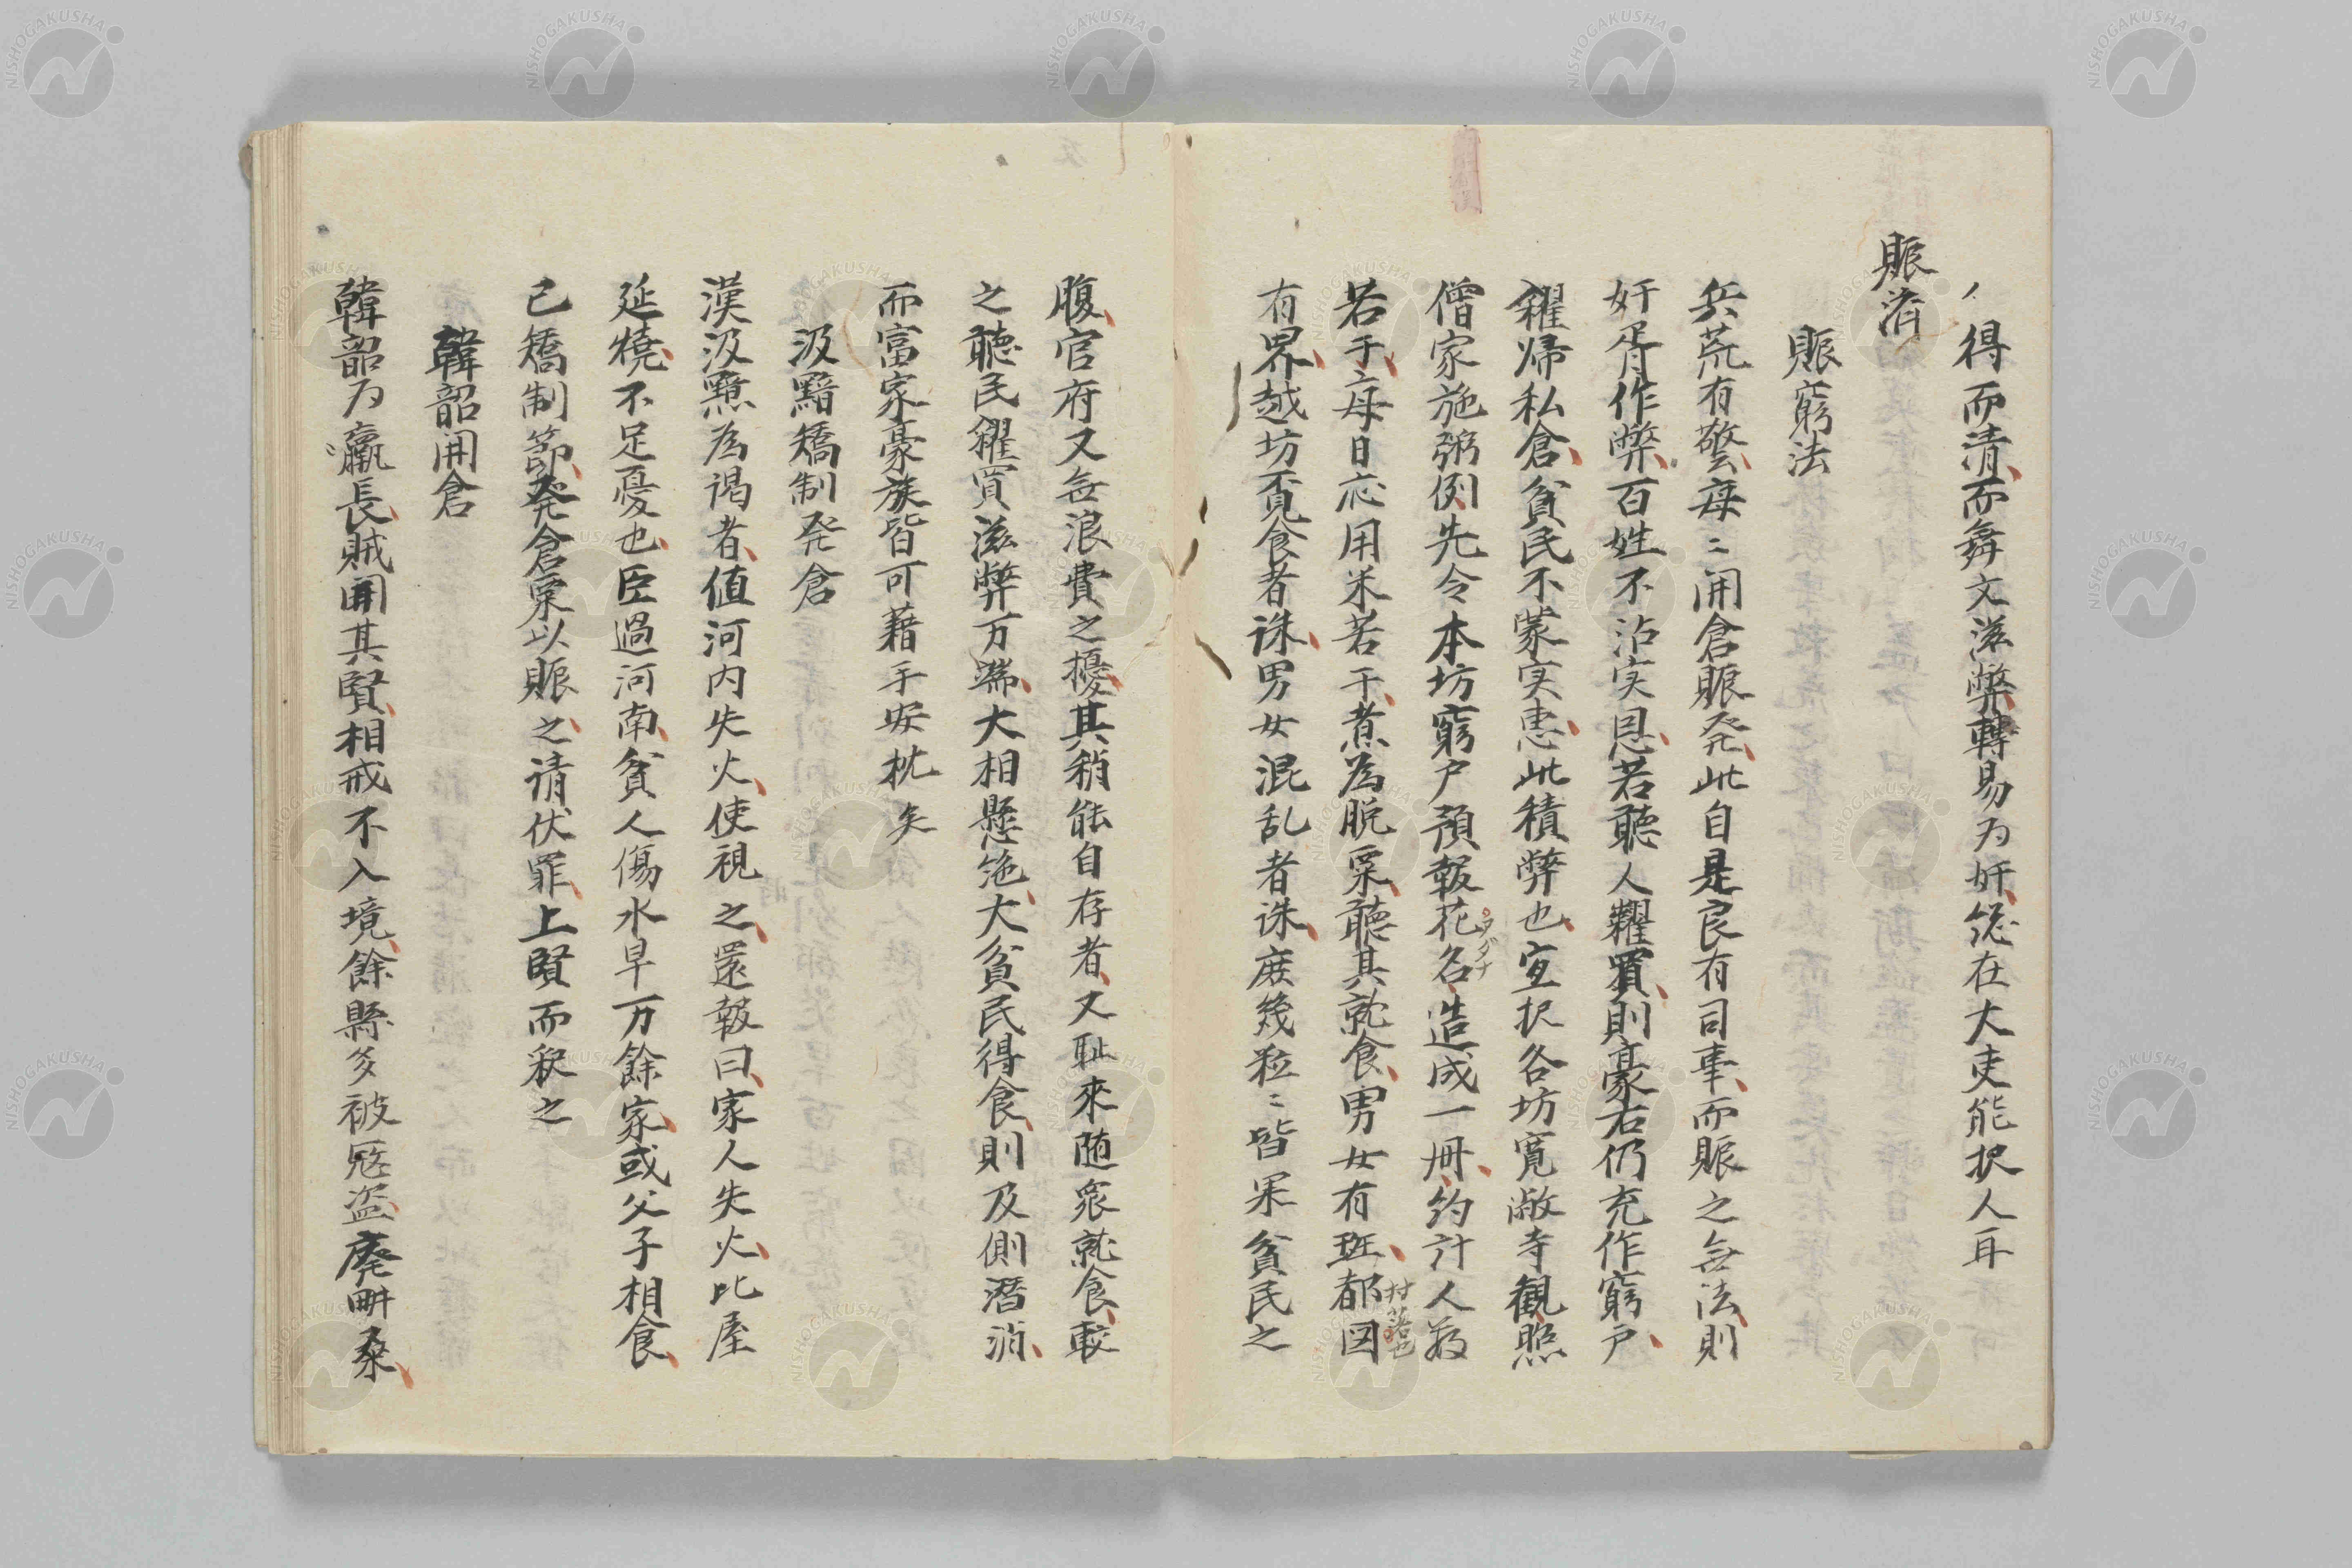 得而清而舞文滋弊轉易为奸総在大吏能択人耳
賑済
賑窮法
兵荒有警毎〻開倉賑発此自是良有司事而賑之無法則
奸胥作弊百姓不沾実恩若聴人糴買則豪右仍充作窮戸
糴帰私倉貧民不蒙実恵此積弊也宜択各坊寛敞寺観照
僧家施粥例先令本坊窮戸預報花名造成一冊約計人数
若干毎日応用米若干煮為脱粟聴其就食男女有班都図
村落也
有界越坊覓食者誅男女混乱者誅庶幾粒〻皆果貧民之
腹官府又無浪費之擾其稍能自存者又耻來随衆就食較
之聴民糴買滋弊万端大相懸絶大貧民得食則反側潛消
而富家豪族皆可藉手安枕矣
汲黯矯制発倉
漢汲黯為謁者値河内失火使視之還報曰家人失火比屋
延燒不足憂也臣過河南貧人傷水旱万餘家或父子相食
已矯制節発倉粟以賑之请伏罪上賢而釈之
韓韶開倉
韓韶为羸長賊聞其賢相戒不入境餘縣多被寇盗廃畊桑